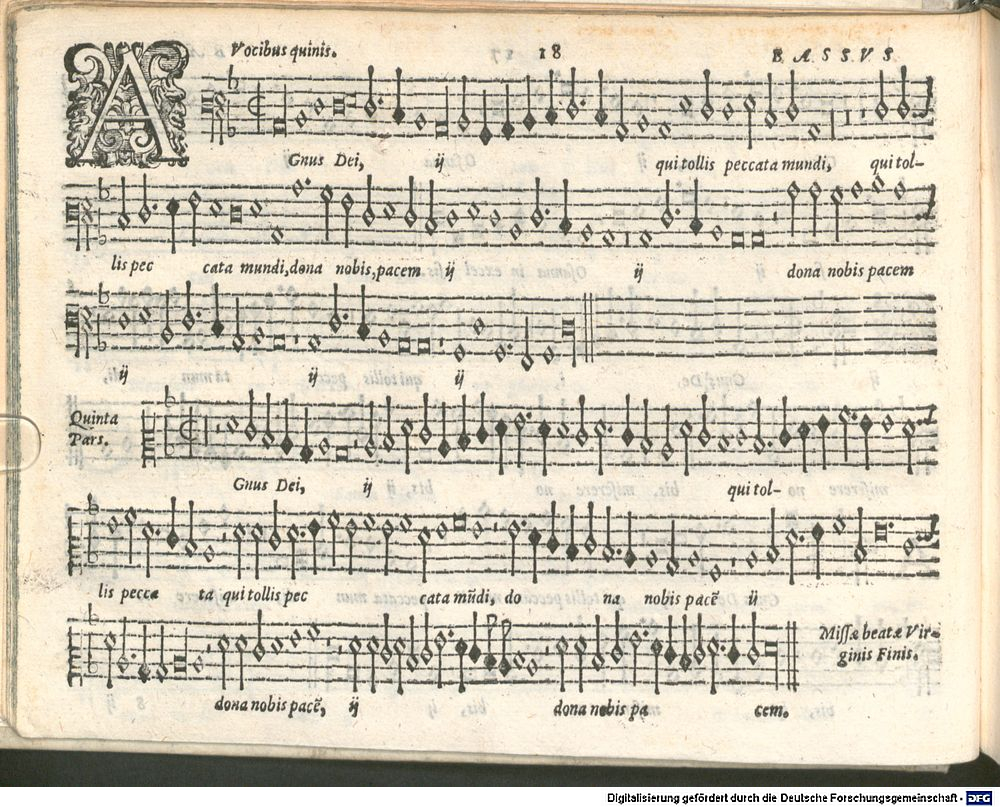 Vocibus quinis. 18 BASSVS
AGnus Dei, ij qui tollis peccata mundi, qui tol-
lis pec cata mundi, dona nobis, pacem ij ij dona nobis pacem
ij ij ij
Quinta
Pars.
Gnus Dei, ij qui tol-
lis pecca ta qui tollis pec cata mũdi, do na nobis pacẽ ij
Missæ beatæ Vir-
ginis Finis.
dona nobis pacẽ, ij dona nobis pa cem.
Digitalisierung gefördert durch die Deutsche Forschungsgemeinschaft - DFG